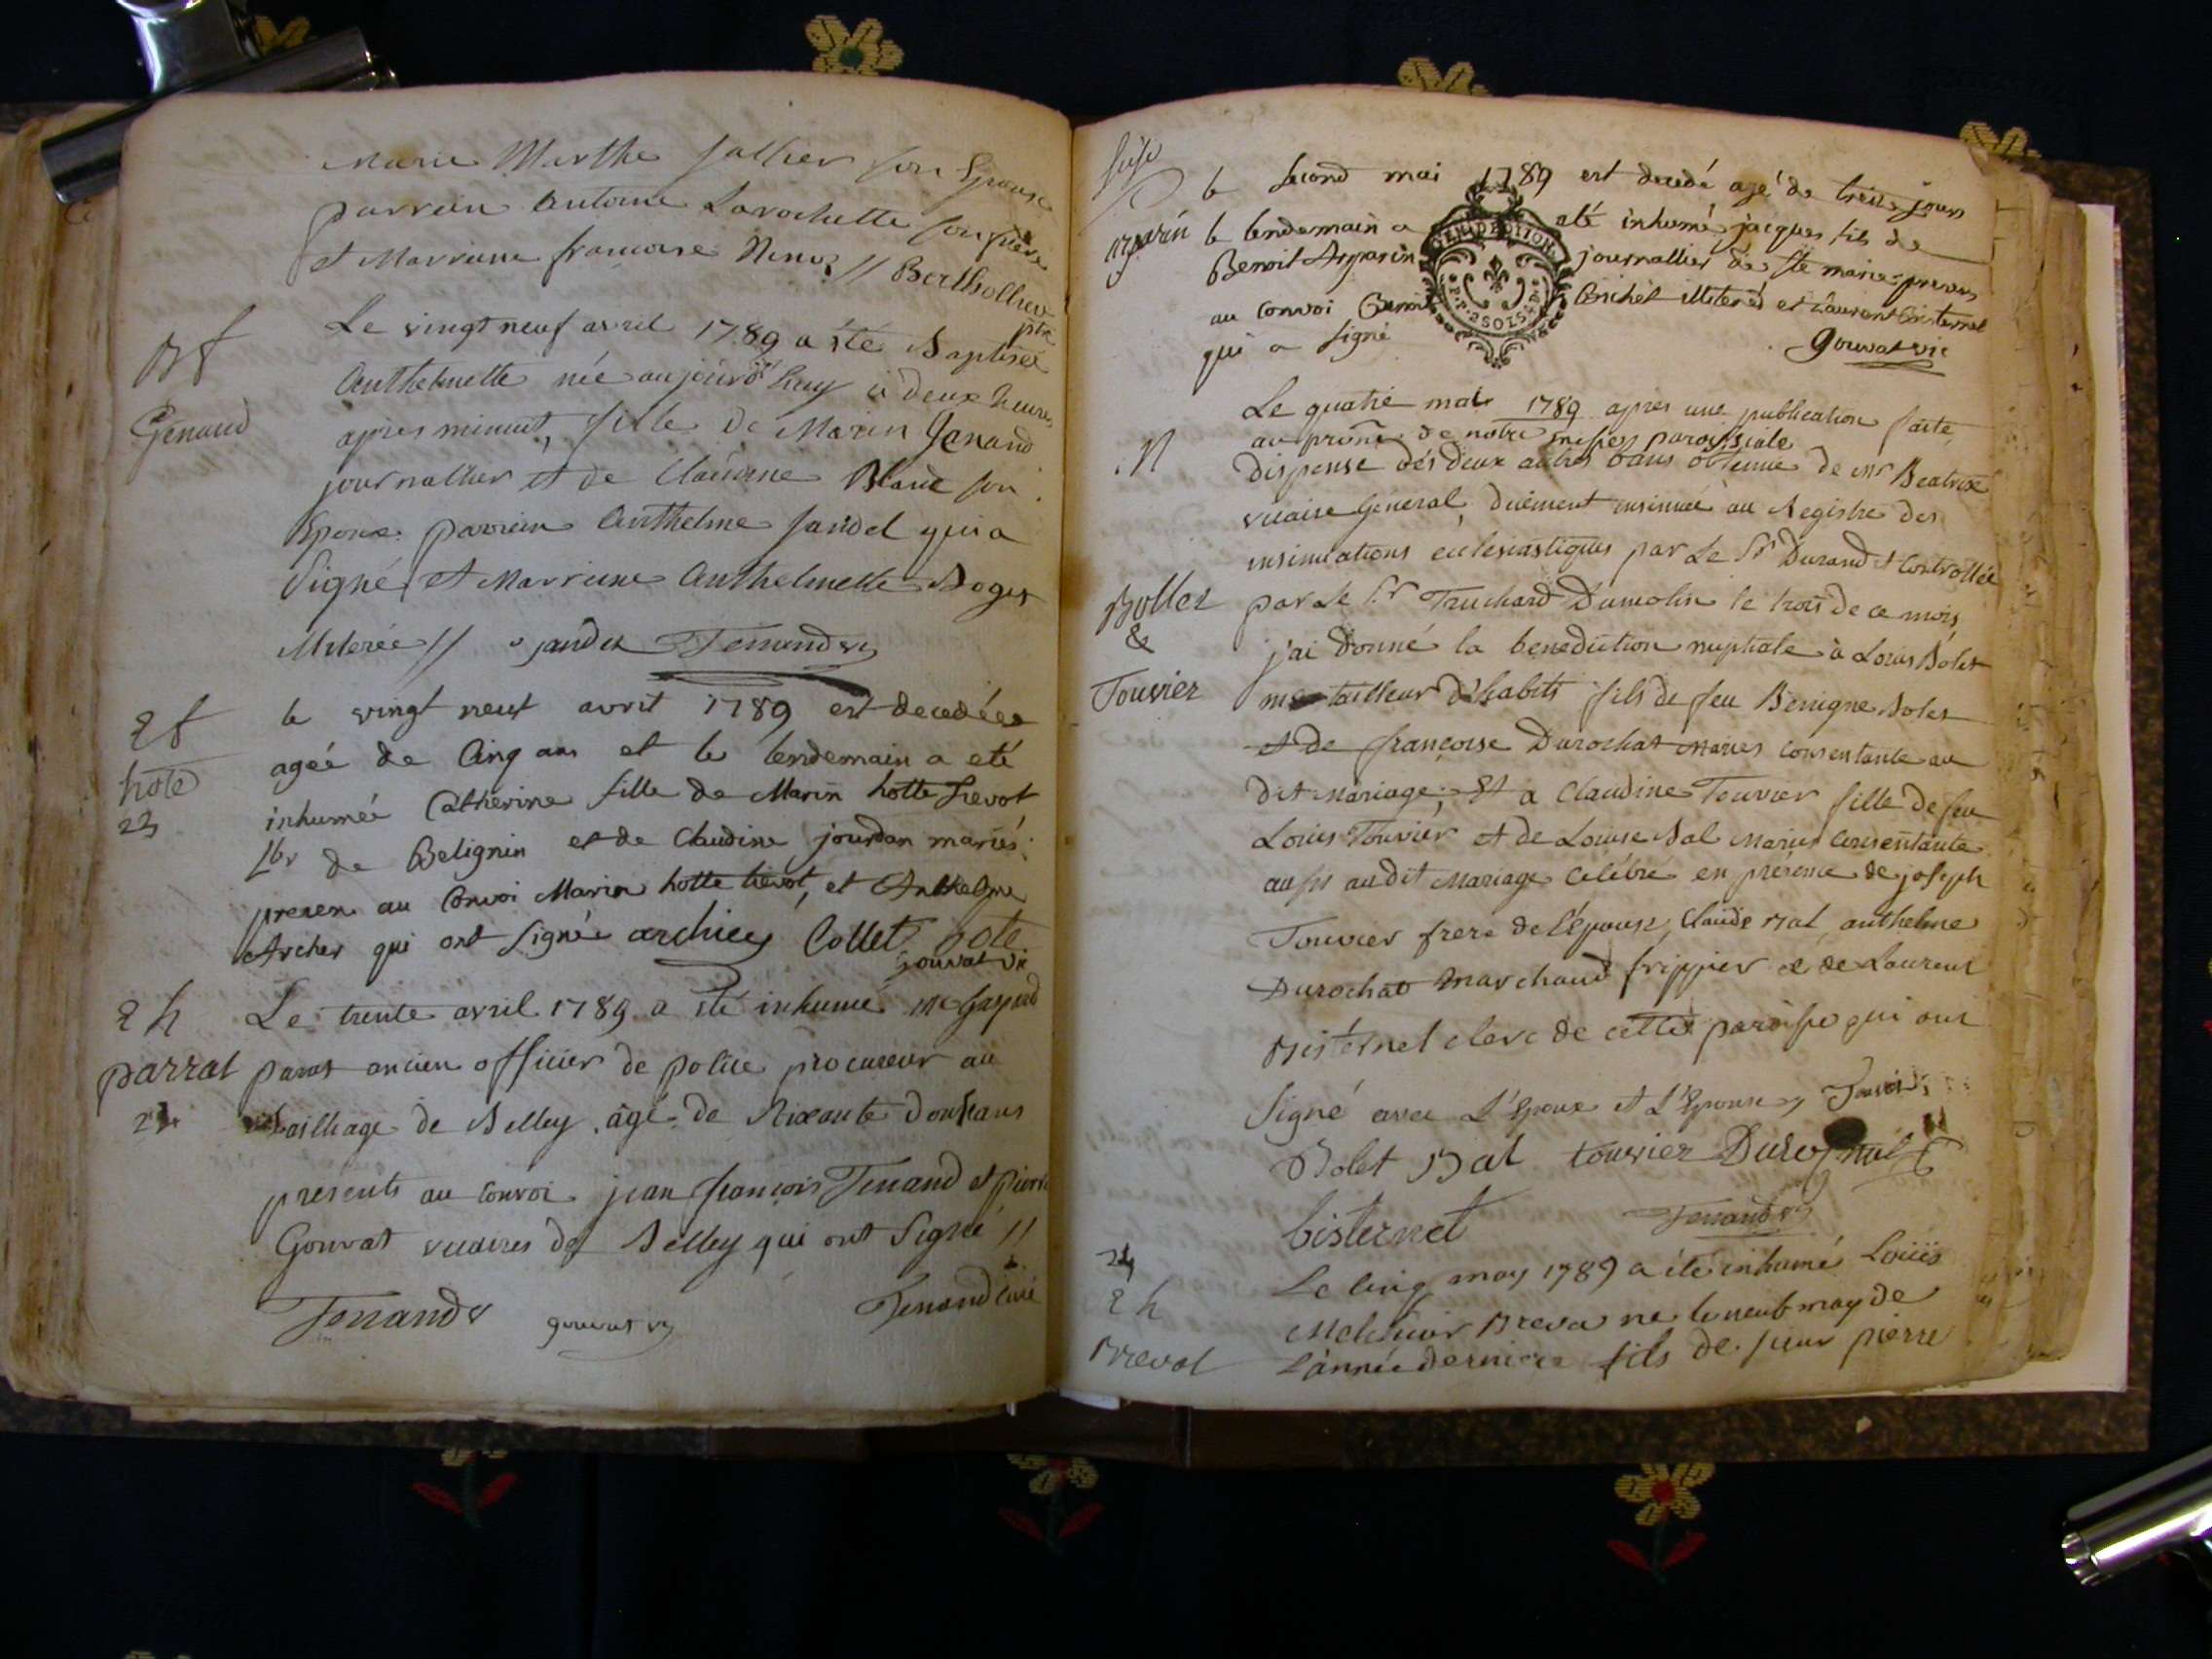 Marie Marthe Jallier son Epouse
parrein Antoine Larochette son frère
et Marreine francoise // Bertholliev
ptre
B f
Genand
Le vingt neuf avril 1789 a été Baptisée
Anthelmette née aujourd'huy à deux heures
apres minuit, fille de Marin Genand
journallier et de Claudine Blanc son
Epouse parrein Anthelme Jandet qui a
Signé, et Marreine Anthelmette Boget
Miterée // jandet Tenand vic
2 f
hote
23
le vingt neuf avril 1789 est decedée
agée de Cinq ans et le lendemain a eté
inhumée Catherine fille de Marin hotte Frevot
Lbr de Belignin et de Claudine jourdan mariés.
presen au Convoi Marin hotte frevot, et Anthelme
Archer qui ont Signé archiey Collet hote
gouvat vic
2 h
parrat
24
Le trente avril 1789 a été inhumé me Gaspard
parat ancien officier de police procureur au
bailliage de Belley, agé de Soixante douze ans
presents au convoi jean françois Tenand et pierre
Gouvat vicaires de Belley qui ont Signé //
Tenand v gouvat vic Tenand curé
Arparin
le second mai 1789 est decedé agé de treize jours
le lendemain a eté inhumé jacques fils de
Benoit Arparin journallier de Ste marie presens
au Convoi Michel Miteret et Laurent Bisternet
qui a signé
Gouvat vic
GEN. D DIJON
P. P. 2 SOLS 4 D.
N
Bollet
&
Touvier
Le quatre mai 1789 apres une publication faite
au prône de notre messe paroissiale
dispense des deux autres bans obtenue de Mr Beatrix
vicaire General, duement insinuée au Registre des
insinuations ecclesiastiques par Le Sr Durand et Controllée
par Le Sr Truchard Dumolin le trois de ce mois,
j'ai donné la benediction nuptiale à Louis Bolet
me tailleur d'habits fils de feu Benigne Bolet
et de françoise Durochat maries consentante au
dit Mariage; Et a Claudine Touvier fille de feu
Louis Touvier et de Louise Bal Maries Consentante
aussi audit Mariage Célébré en présence de joseph
Touvier frere de l'épouse, Claude Bal, anthelme
Durochat Marchand frippier et de Laurent
Bisternet clerc de cette paroisse qui ont
Signé avec L'Epoux et L'Epouse, Touvier
Bolet Bal touvier Durochat
bisternet Tenand vic
24
2 h
Brevat
Le cinq may 1789 a été inhumé Louis
Melchior Breva ne le neuf may de
L'année derniere fils de sieur pierre